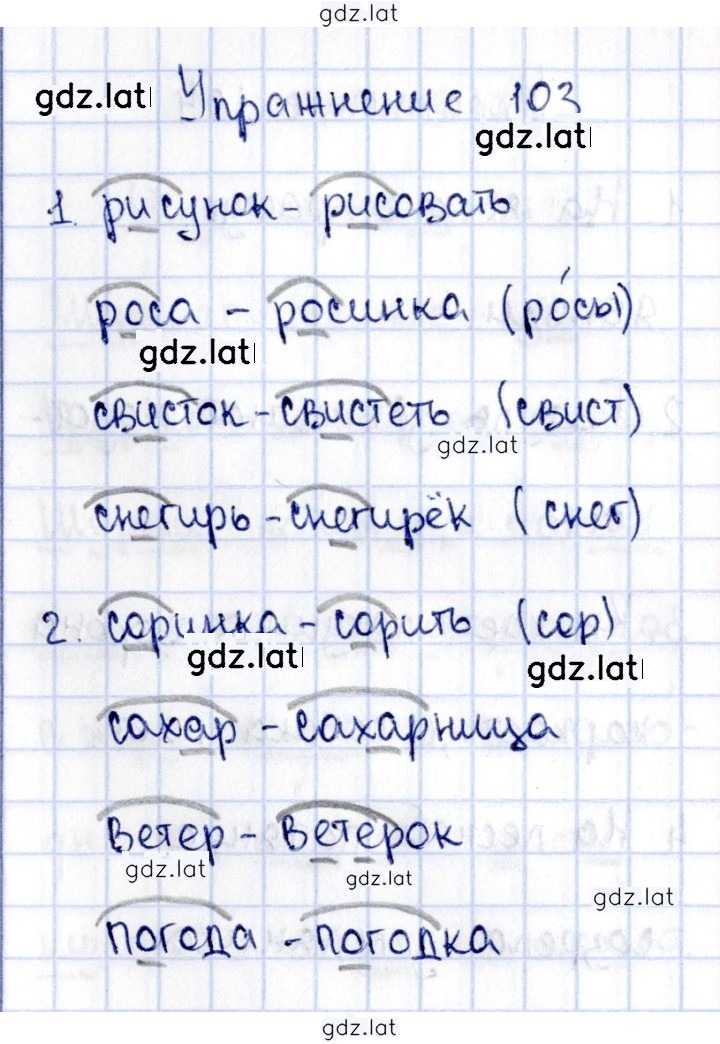 gdz.lat
gdz.lat
Упражнение 103
gdz.lat
1. рисунок - рисовать
роса - росинка (ро́сы)
gdz.lat
свисток - свистеть (свист)
gdz.lat
снегирь - снегирёк (снег)
2. соринка - сорить (сор)
gdz.lat gdz.lat
сахар - сахарница
ветер - ветерок
gdz.lat gdz.lat
gdz.lat
погода - погодка
gdz.lat